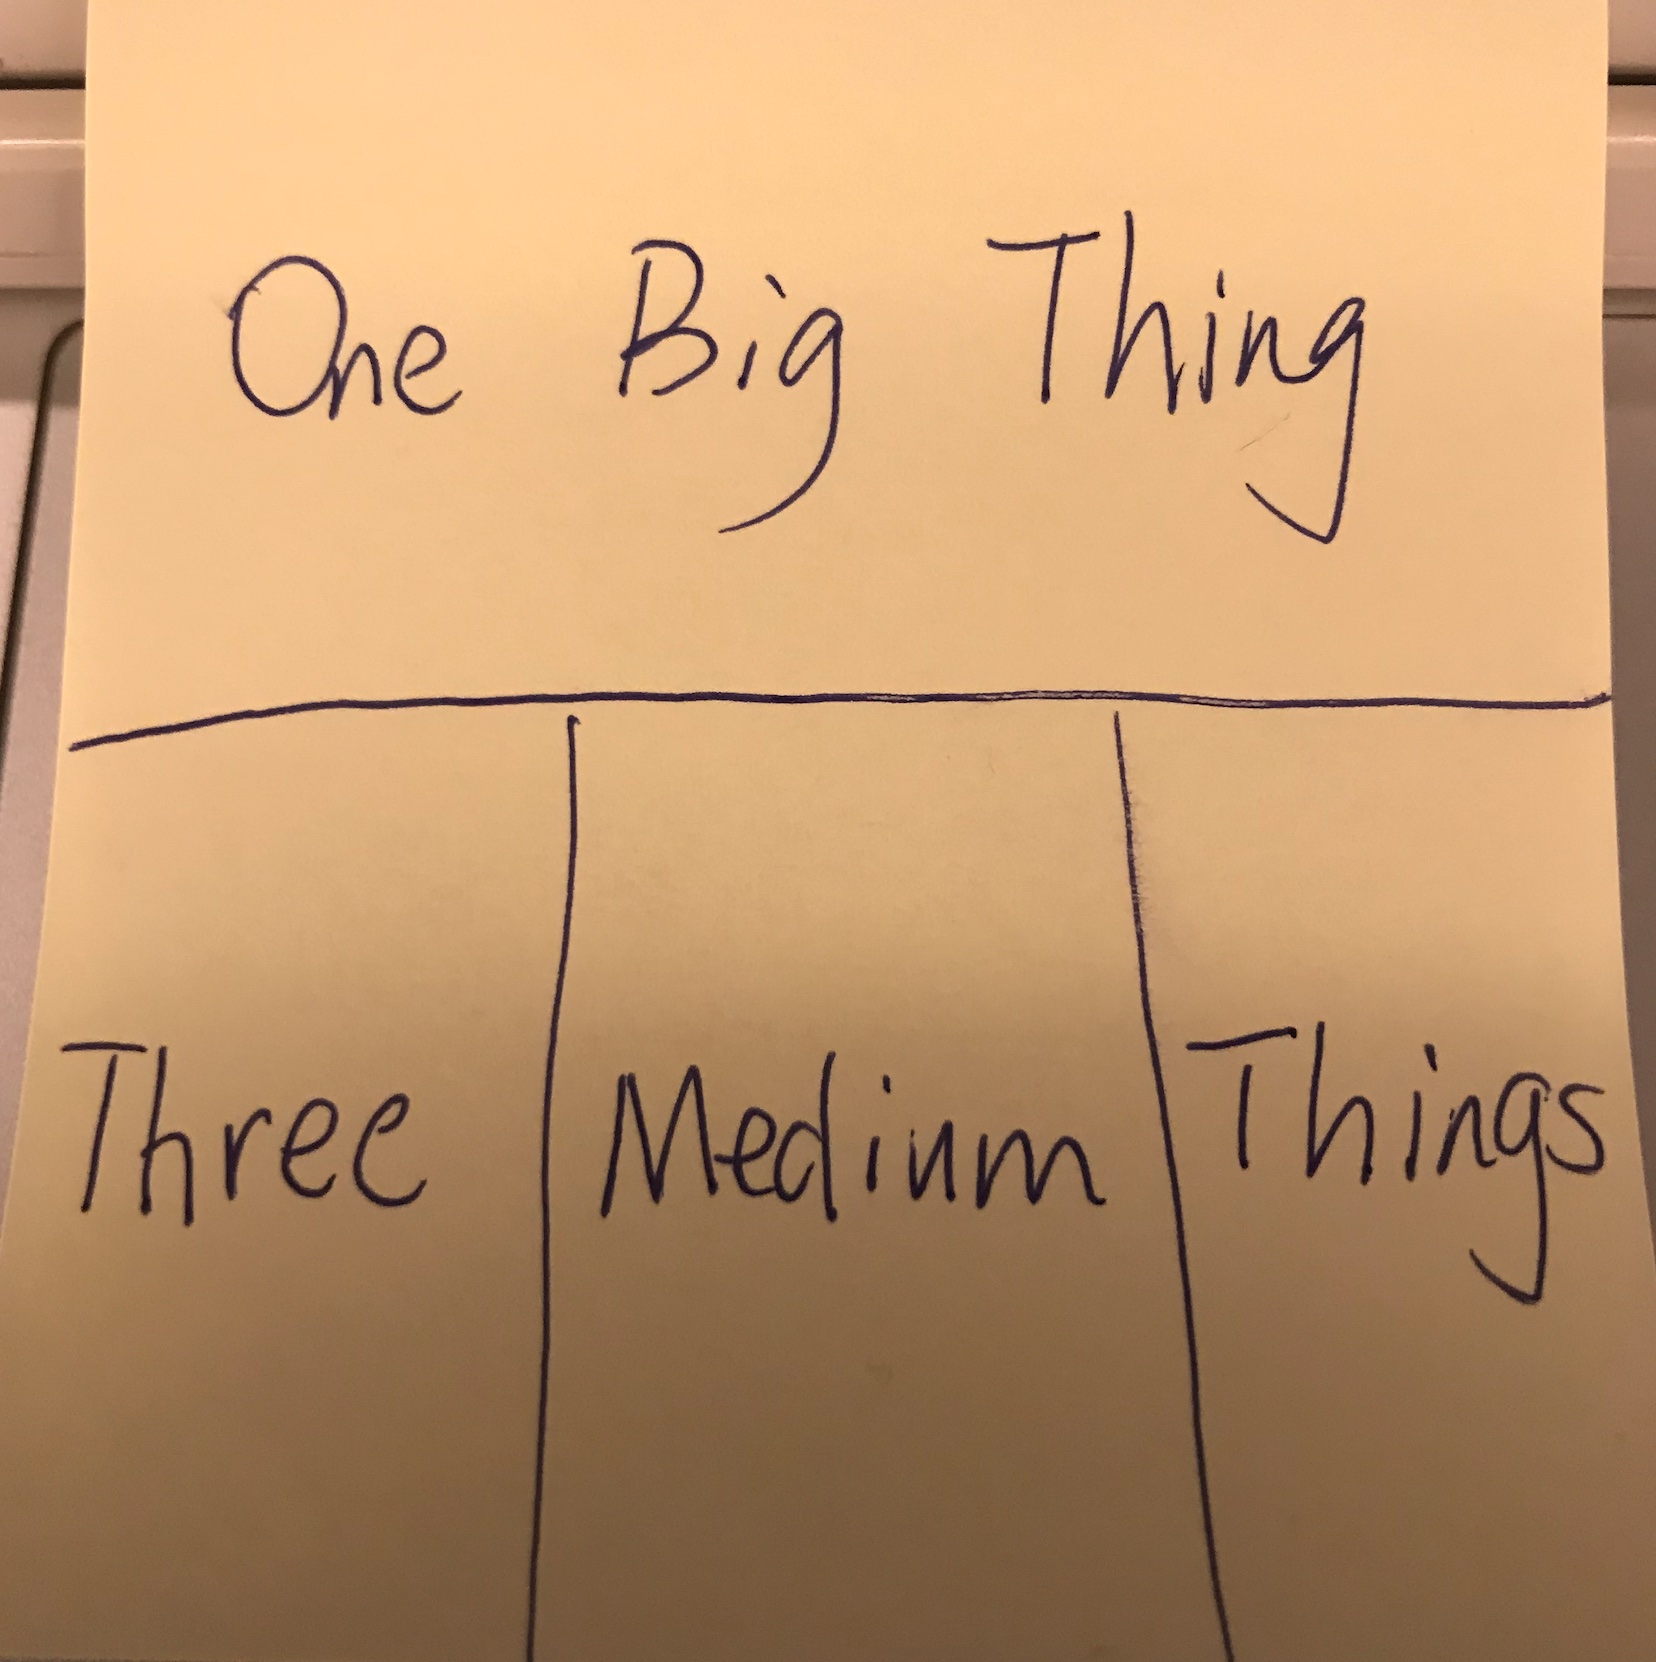 One Big Thing
Three Medium Things